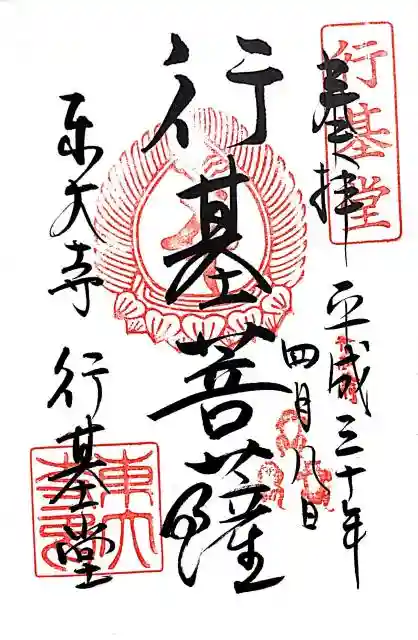 行基堂
奉拝
平成三十年
四月八日
行基菩薩
東大寺
行基堂